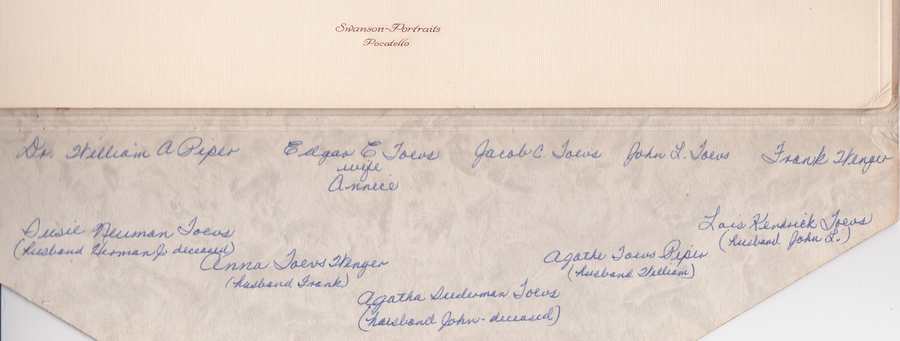 Swanson-Portraits
Pocatello
Dr. William A Piper Edgar E Toevs Jacob C. Toevs John L. Toevs Frank Wenger
wife
Annice
Susie Neuman Toevs Lois Kendrick Toevs
(husband Herman J. deceased) (husband John L.)
Anna Toevs Wenger Agathe Toevs Piper
(husband Frank) (husband William)
Agatha Suderman Toevs
(husband John - deceased)